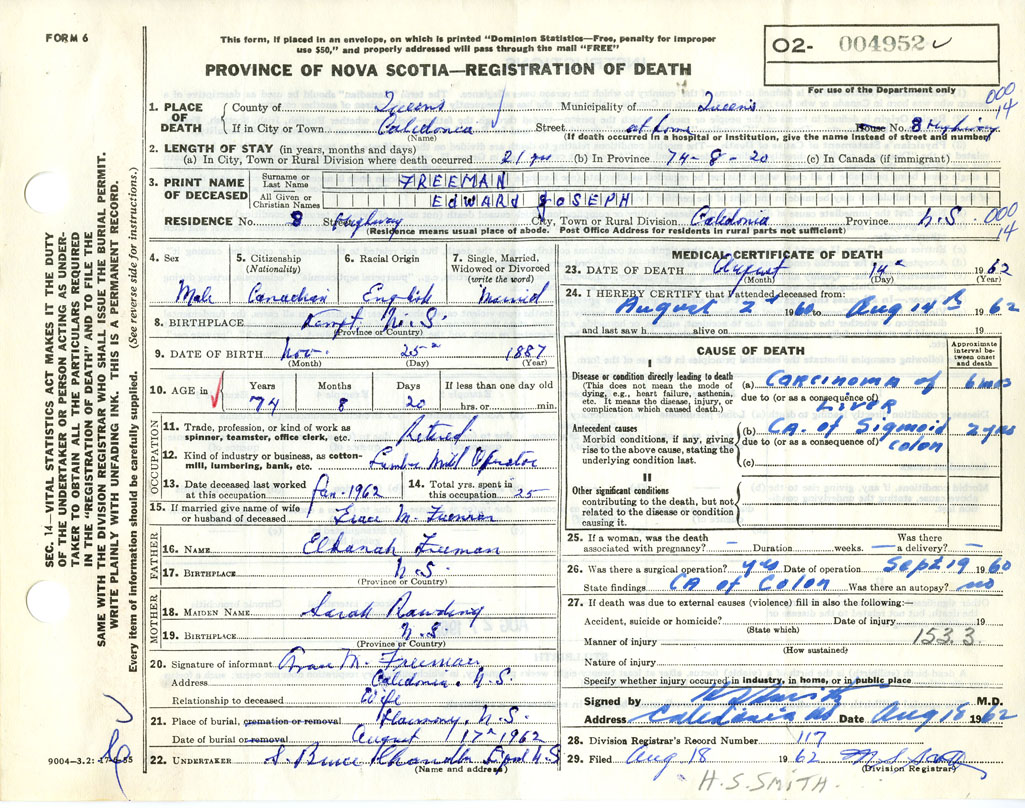 FORM 6
This form, if placed in an envelope, on which is printed "Dominion Statistics—Free, penalty for improper
use $50," and properly addressed will pass through the mail "FREE"
O2- 004952
For use of the Department only
PROVINCE OF NOVA SCOTIA—REGISTRATION OF DEATH
000
14
1. PLACE OF DEATH County of Queens Municipality of Queens
If in City or Town Caledonia Street at home House No. 8 Highway
(Name) (If death occurred in a hospital or institution, give the name instead of street and number)
2. LENGTH OF STAY (in years, months and days)
(a) In City, Town or Rural Division where death occurred 21 yrs (b) In Province 74-8-20 (c) In Canada (if immigrant)
3. PRINT NAME OF DECEASED Surname or Last Name FREEMAN
All Given or Christian Names EDWARD JOSEPH
RESIDENCE No. 8 St. Highway City, Town or Rural Division Caledonia Province N.S.
000
14
(Residence means usual place of abode. Post Office Address for residents in rural parts not sufficient)
SEC. 14—VITAL STATISTICS ACT MAKES IT THE DUTY
OF THE UNDERTAKER OR PERSON ACTING AS UNDER-
TAKER TO OBTAIN ALL THE PARTICULARS REQUIRED
IN THE "REGISTRATION OF DEATH" AND TO FILE THE
SAME WITH THE DIVISION REGISTRAR WHO SHALL ISSUE THE BURIAL PERMIT.
WRITE PLAINLY WITH UNFADING INK. THIS IS A PERMANENT RECORD.
Every item of information should be carefully supplied. (See reverse side for instructions.)
4. Sex 5. Citizenship (Nationality) 6. Racial Origin 7. Single, Married, Widowed or Divorced (write the word)
Male Canadian English Married
8. BIRTHPLACE Kempt N.S.
(Province or Country)
9. DATE OF BIRTH Nov. 25th 1887
(Month) (Day) (Year)
10. AGE in Years Months Days If less than one day old
74 8 20 hrs. or min.
OCCUPATION
11. Trade, profession, or kind of work as
spinner, teamster, office clerk, etc. Retired
12. Kind of industry or business, as cotton-
mill, lumbering, bank, etc. Lumber Mill Operator
13. Date deceased last worked
at this occupation Jan-1962
14. Total yrs. spent in
this occupation 25
15. If married give name of wife
or husband of deceased Grace M. Freeman
FATHER
16. NAME Elkanah Freeman
17. BIRTHPLACE N.S.
(Province or Country)
MOTHER
18. MAIDEN NAME Sarah Rawding
19. BIRTHPLACE N.S.
(Province or Country)
20. Signature of informant Grace M. Freeman
Address Caledonia, N.S.
Relationship to deceased Wife
21. Place of burial, cremation or removal Harmony, N.S.
Date of burial or removal August 17th 1962
22. UNDERTAKER S. Bruce Chandler L'pool N.S.
(Name and address)
9004-3.2: 17-6-55
MEDICAL CERTIFICATE OF DEATH
23. DATE OF DEATH August 14th 1962
(Month) (Day) (Year)
24. I HEREBY CERTIFY that I attended deceased from:
August 2 1960 to Aug 14th 1962
and last saw h alive on 19
CAUSE OF DEATH
Approximate interval between onset and death
I
Disease or condition directly leading to death
(This does not mean the mode of
dying, e.g., heart failure, asthenia,
etc. It means the disease, injury, or
complication which caused death.)
(a) Carcinoma of 6 mos
due to (or as a consequence of)
LIVER
Antecedent causes
Morbid conditions, if any, giving
rise to the above cause, stating the
underlying condition last.
(b) CA. of Sigmoid 2 yrs
due to (or as a consequence of) Colon
(c)
II
Other significant conditions
contributing to the death, but not
related to the disease or condition
causing it.
25. If a woman, was the death
associated with pregnancy? — Duration — weeks. Was there
a delivery? —
26. Was there a surgical operation? yes Date of operation Sept 19 1960
State findings CA of Colon Was there an autopsy? no
27. If death was due to external causes (violence) fill in also the following:—
Accident, suicide or homicide? Date of injury 19
(State which)
Manner of injury 153.3.
(How sustained)
Nature of injury
Specify whether injury occurred in industry, in home, or in public place
Signed by M.D.
Address Caledonia NS Date Aug 18 1962
28. Division Registrar's Record Number 117
29. Filed Aug 18 1962
(Division Registrar)
H.S. SMITH.